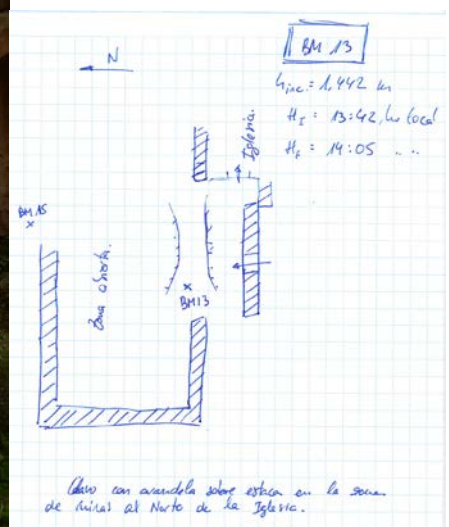 BM 13
N
h inc. = 1.442 m
H_I = 13:42, hr local
H_f = 14:05 " "
Iglesia.
BM 15
Zona abierta.
BM13
Clavo con arandela sobre estaca en la zona
de ruinas al Norte de la Iglesia.